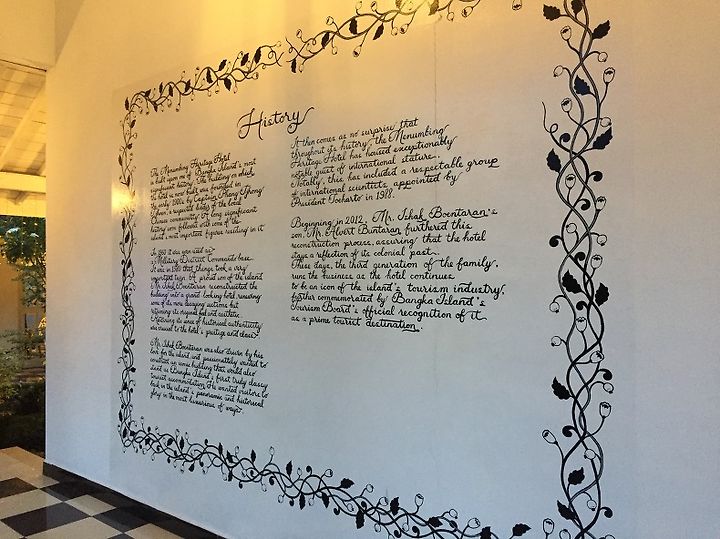 History
The Menumbing Heritage Hotel
is built upon one of Bangka Island's most
significant history. The building on which
the hotel is now built was founded in
the early 1900's by Captain
a respected being of the local
Chinese community. A long significant
history soon followed with some of the
island's most important figures residing in it.
In 1950 it was even used as
a Military District Command base.
It was in 1980 that things took a very
important turn. A proud son of the island
Mr. Ishak Boentaran reconstructed the
building into a grand looking hotel,
some of its more decaying sections but
retaining its original feel and aesthetic.
Retaining its sense of historical authenticity
was crucial to the hotel's prestige and class.
Mr. Ishak Boentaran was also driven by his
love for the island and passionately wanted to
construct an iconic building that would also
stand as Bangka Island's first truly classy
tourist accommodation. He wanted visitors to
bask in the island's panoramic and historical
glory in the most luxurious of ways.
It then comes as no surprise that
throughout its history, the Menumbing
Heritage Hotel has housed exceptionally
notable guest of international stature.
Notably, this has included a respectable group
of international scientists appointed by
President Soeharto in 1988.
Beginning in 2012, Mr. Ishak Boentaran's
son, Mr. Alvert Bintaran furthered this
reconstruction process, assuring that the hotel
stays a reflection of its colonial past.
These days, the third generation of the family,
runs the business as the hotel continues
to be an icon of the island's tourism industry,
further commemorated by Bangka Island's
Tourism Board's official recognition of it
as a prime tourist destination.